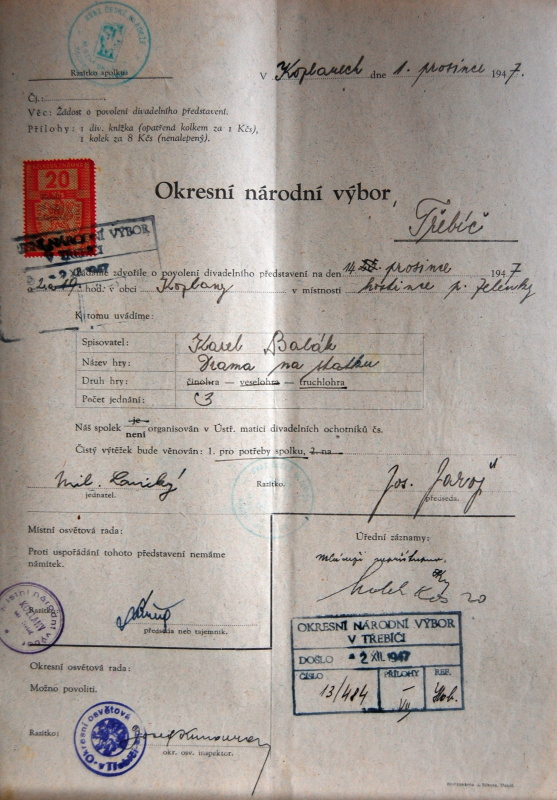 Razítko spolku
V dne 1. prosince 1947.
Čj.:
Věc: Žádost o povolení divadelního představení.
Přílohy: 1 div. knížka (opatřená kolkem za 1 Kčs),
1 kolek za 8 Kčs (nenalepený).
20
Okresní národní výbor,
Třebíč
NÁRODNÍ VÝBOR
V TŘEBÍČI
Žádáme zdvořile o povolení divadelního představení na den 14. prosince 1947
hod. v obci Koplany v místnosti hostince p. Jelínky
K tomu uvádíme:
Spisovatel: Karel Balák
Název hry: Drama na statku
Druh hry: činohra — veselohra — truchlohra
Počet jednání: 3
Náš spolek je
není organisován v Ústř. matici divadelních ochotníků čs.
Čistý výtěžek bude věnován: 1. pro potřeby spolku, 2. na
Mil. Jos.
jednatel. Razítko. předseda.
Místní osvětová rada:
Proti uspořádání tohoto představení nemáme
námitek.
Razítko:
předseda neb tajemník.
Úřední záznamy:
Kčs 20
OKRESNÍ NÁRODNÍ VÝBOR
V TŘEBÍČI
DOŠLO 2 XII. 1947
ČÍSLO PŘÍLOHY REF.
13/484
Okresní osvětová rada:
Možno povoliti.
Razítko:
Okresní osvětová rada
v Třebíči
Josef
okr. osv. inspektor.